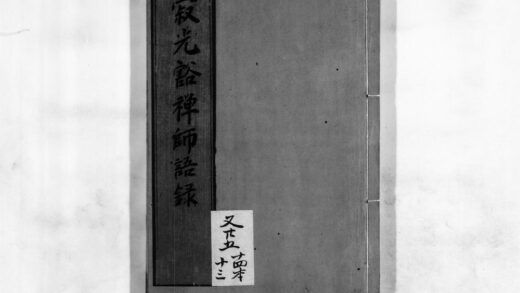 寂光豁禅師語録
又廿五
十四本
十三